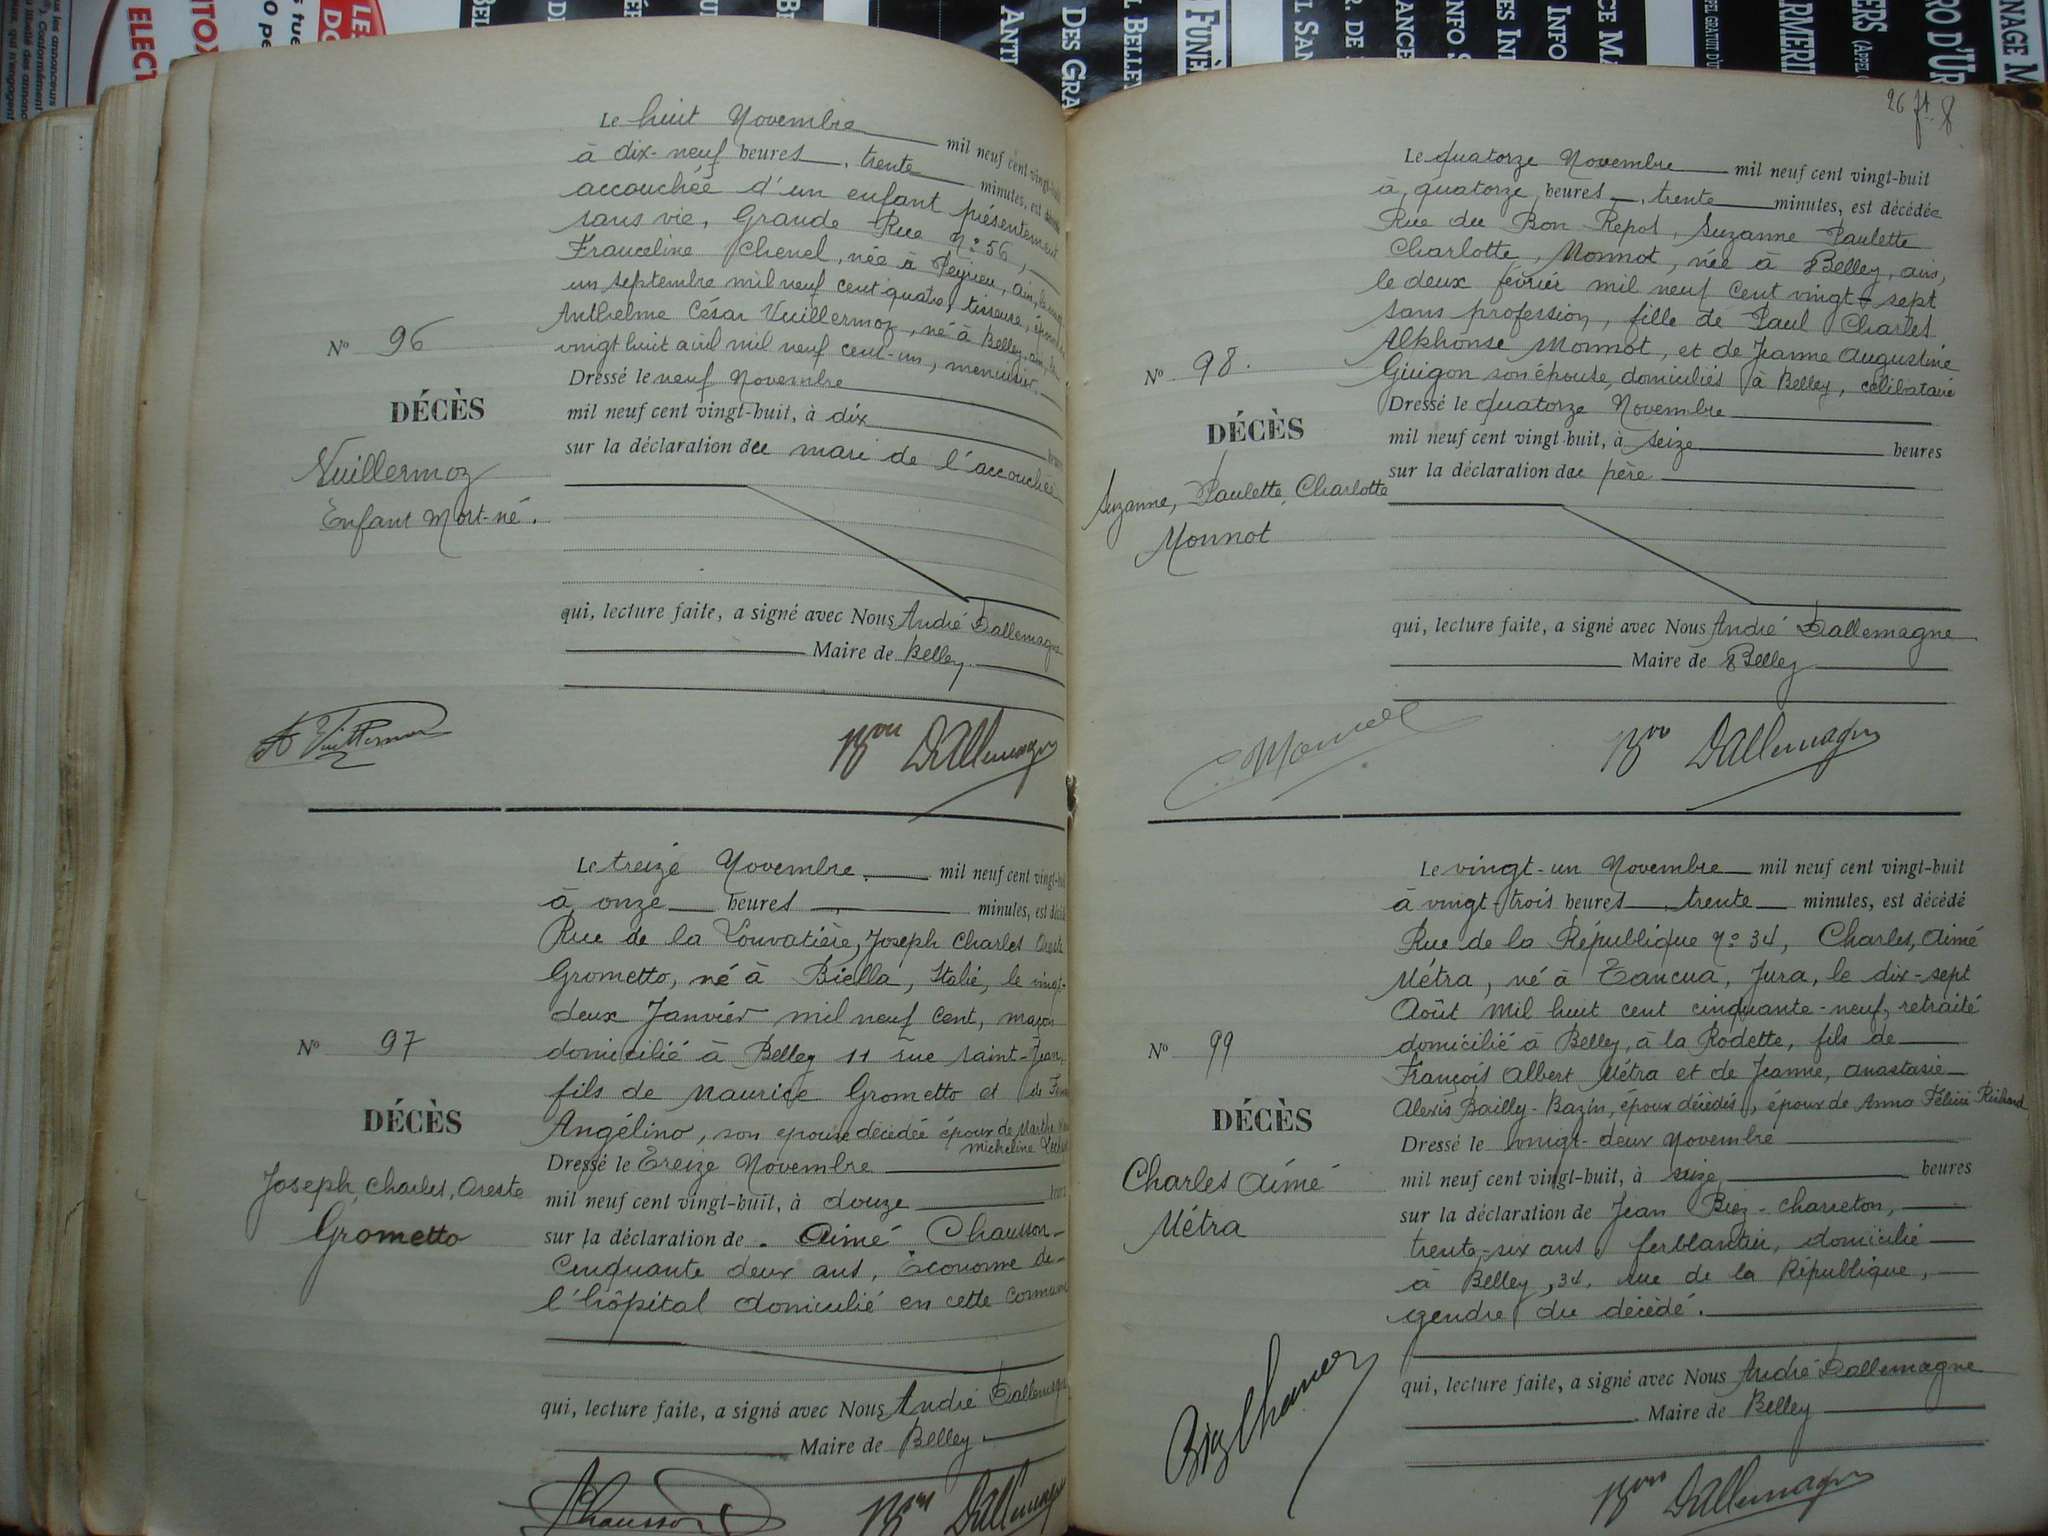 Le huit Novembre mil neuf cent vingt-huit
à dix-neuf heures, trente minutes, est
accouchée d'un enfant présentement
sans vie, Grande Rue N° 56,
Franceline Chenel, née à Peyrieu, ain,
un septembre mil neuf cent quatre, tisseuse,
Anthelme César Vuillermoz, né à Belley, ain, le
vingt huit avril mil neuf cent-un, menuisier.
N° 96
DÉCÈS
Vuillermoz
Enfant Mort-né.
Dressé le neuf Novembre
mil neuf cent vingt-huit, à dix heures
sur la déclaration du mari de l'accouchée
qui, lecture faite, a signé avec Nous André Dallemagne
Maire de Belley.
A Vuillermoz
Bon Dallemagne
Le treize Novembre mil neuf cent vingt-huit
à onze heures, minutes, est décédé
Rue de la Louvatière, Joseph Charles Oreste
Grometto, né à Biella, Italie, le vingt-
deux Janvier mil neuf cent, maçon
domicilié à Belley 11 rue Saint-Jean,
fils de Maurice Grometto et de
Angélino, son épouse décédée époux de Marthe
Micheline
N° 97
DÉCÈS
Joseph, Charles, Oreste
Grometto
Dressé le Treize Novembre
mil neuf cent vingt-huit, à douze
sur la déclaration de Aimé Chausson
Cinquante deux ans, Econome de
l'hôpital domicilié en cette commune
qui, lecture faite, a signé avec Nous André Dallemagne
Maire de Belley.
Chausson
Bon Dallemagne
26 ft. 8
Le quatorze Novembre mil neuf cent vingt-huit
à quatorze heures, trente minutes, est décédée
Rue du Bon Repos, Suzanne Paulette
Charlotte, Monnot, née à Belley, ain,
le deux février mil neuf cent vingt-sept
sans profession, fille de Paul Charles
Alphonse Monnot, et de Jeanne Augustine
Guigon son épouse, domiciliés à Belley, célibataire
N° 98.
DÉCÈS
Suzanne, Paulette, Charlotte
Monnot
Dressé le quatorze Novembre
mil neuf cent vingt-huit, à seize heures
sur la déclaration du père
qui, lecture faite, a signé avec Nous André Dallemagne
Maire de Belley
Bon Dallemagne
Le vingt-un Novembre mil neuf cent vingt-huit
à vingt-trois heures, trente minutes, est décédé
Rue de la République N° 34, Charles, Aimé
Métra, né à Tancua, Jura, le dix-sept
Août mil huit cent cinquante-neuf, retraité
domicilié à Belley, à la Rodette, fils de
François Albert Métra et de Jeanne, Anastasie
Alexis Bailly-Bazin, époux décédés, époux de Anna Félicie
N° 99
DÉCÈS
Charles Aimé
Métra
Dressé le vingt-deux Novembre
mil neuf cent vingt-huit, à seize heures
sur la déclaration de Jean Biez-Charreton,
trente-six ans, ferblantier, domicilié
à Belley, 34, rue de la République,
gendre du décédé.
qui, lecture faite, a signé avec Nous André Dallemagne
Maire de Belley
Bon Dallemagne